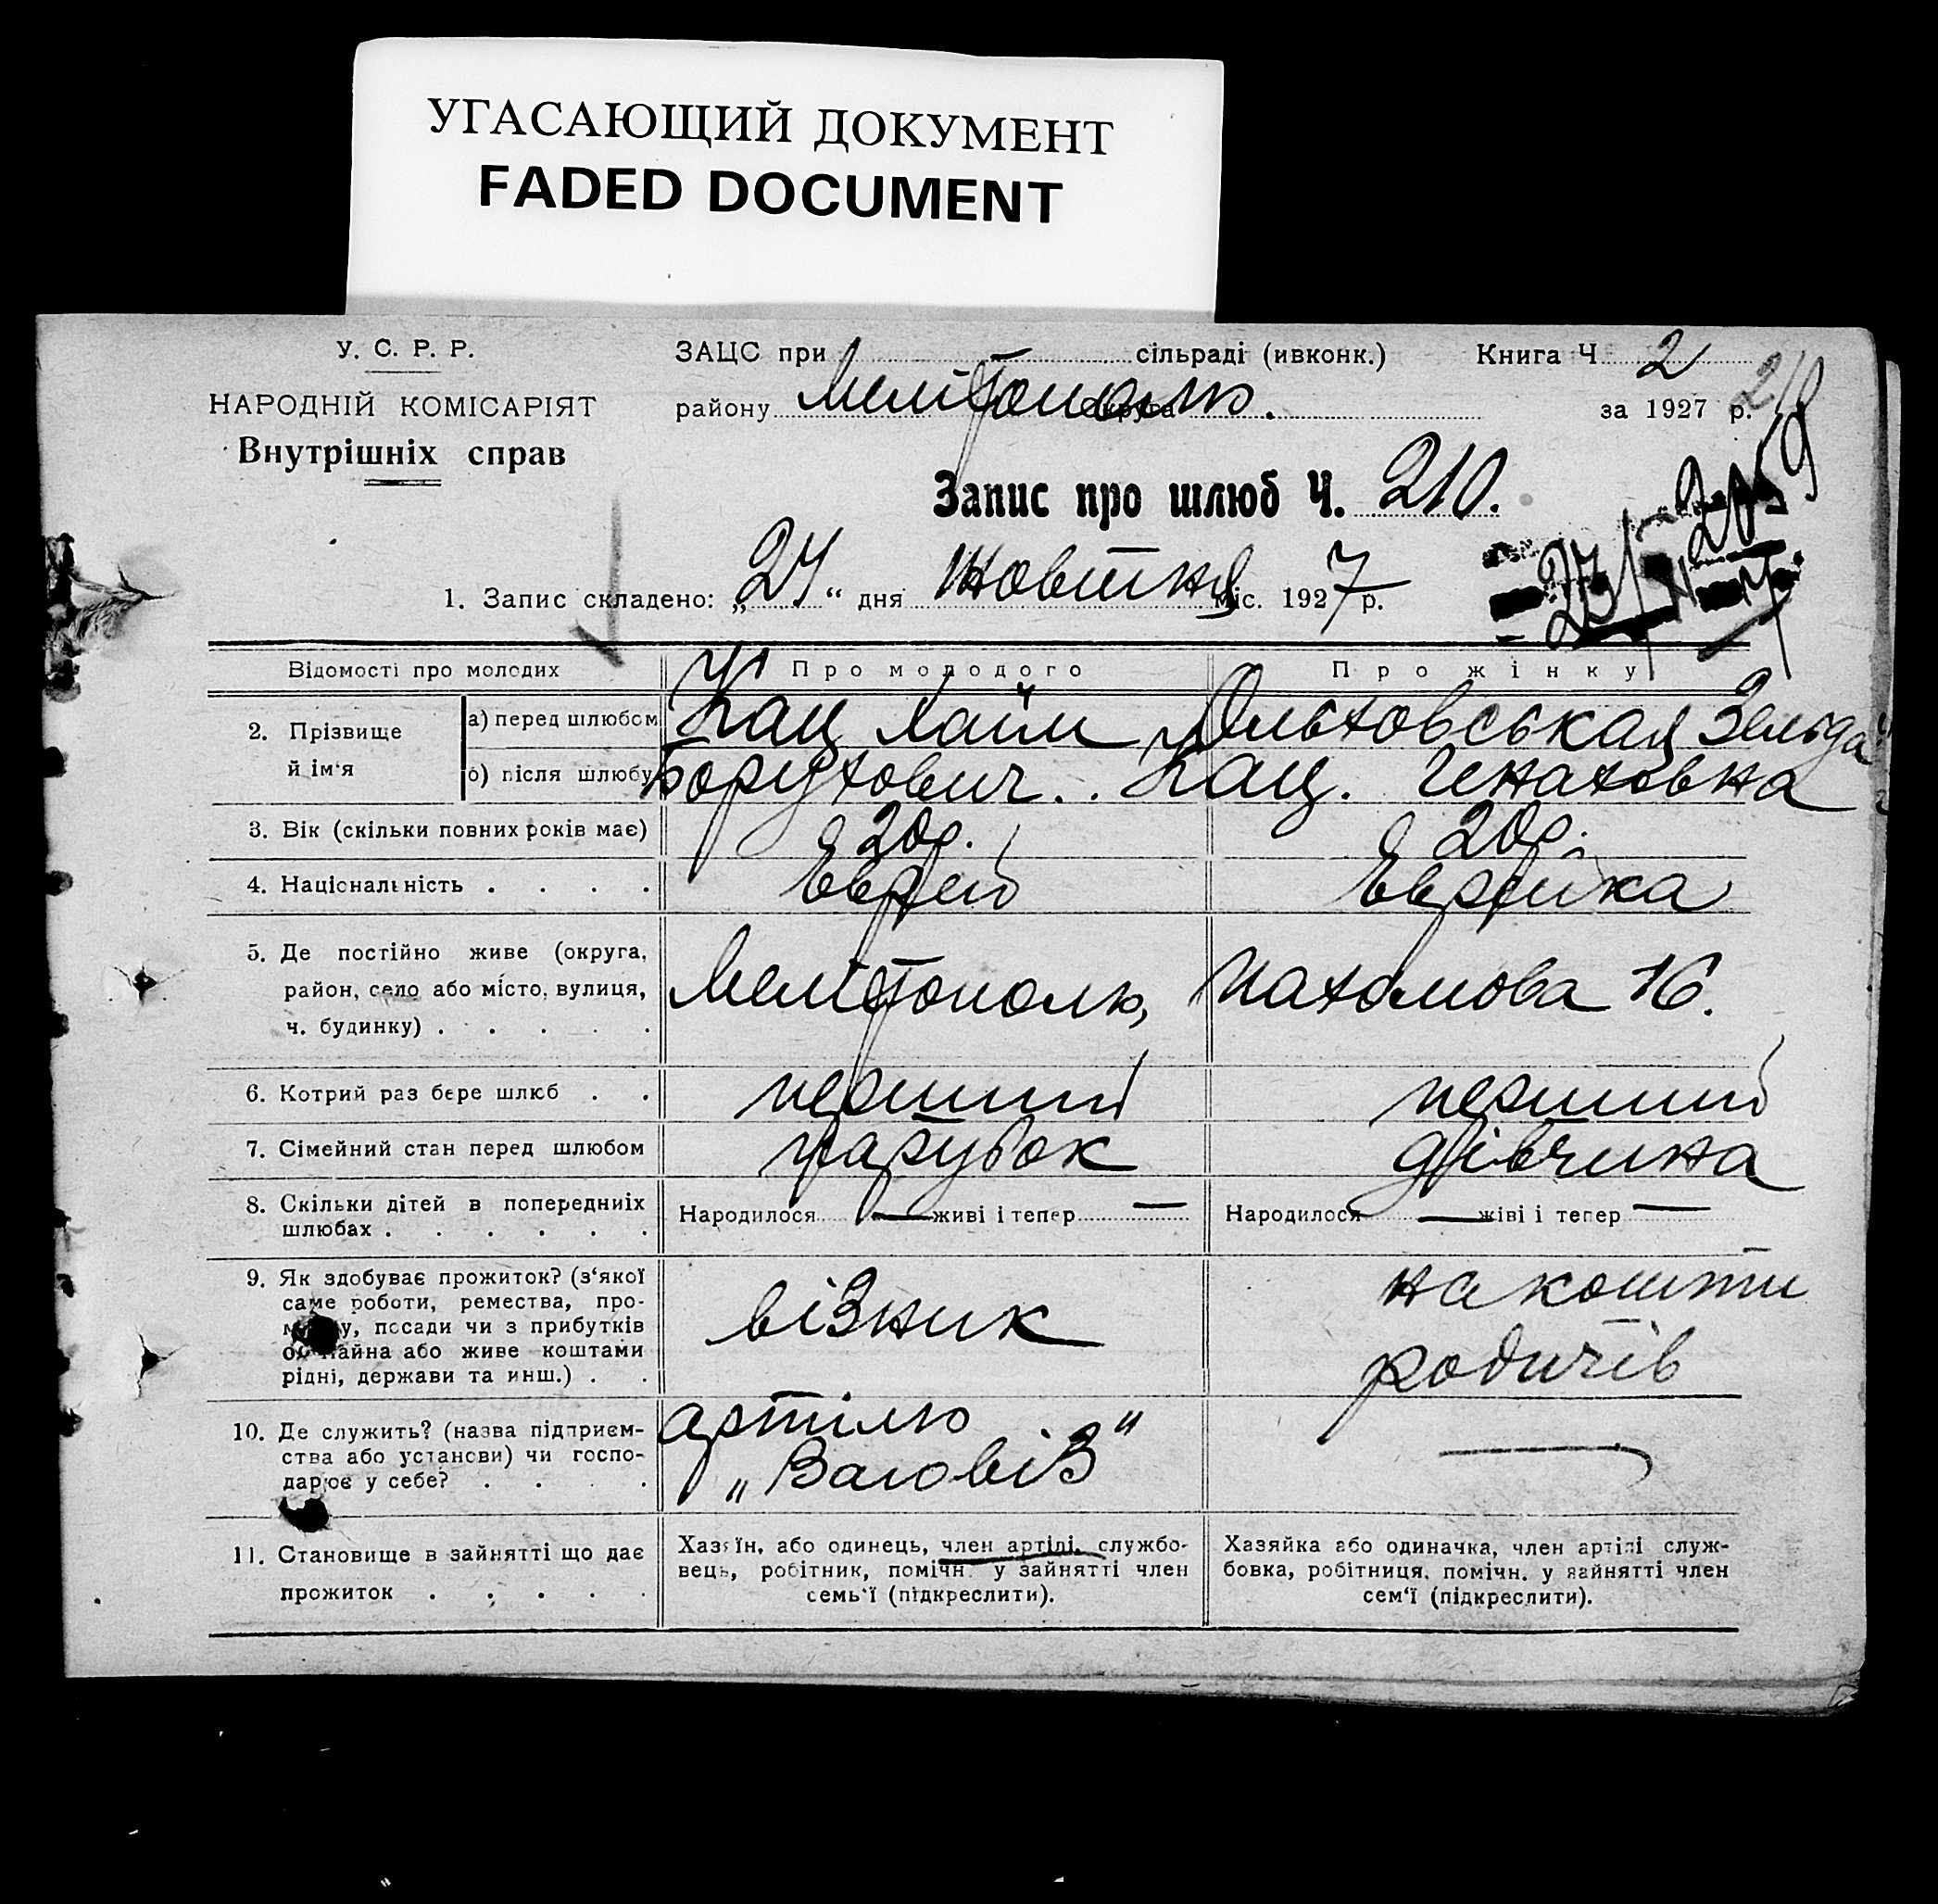 УГАСАЮЩИЙ ДОКУМЕНТ
FADED DOCUMENT
У. С. Р. Р.
НАРОДНІЙ КОМІСАРІЯТ
Внутрішніх справ
ЗАЦС при сільраді (ивконк.)
району Мелітополю. округа
Книга Ч 2
за 1927 р.
210
Запис про шлюб Ч. 210.
1. Запис складено: „24“ дня Жовтня міс. 1927 р.
Відомості про молодих
Про молодого
Про жінку
2. Прізвище й ім‘я
а) перед шлюбом
б) після шлюбу
Кац Хаїм
Борухович..
Ольховськая Зельда
Кац. Інаховна
3. Вік (скільки повних років має)
20р.
20р.
4. Національність . . . .
Еврей
Еврейка
5. Де постійно живе (округа,
район, село або місто, вулиця,
ч. будинку) . . . . .
Мелітополь, Пахомова 16.
6. Котрий раз бере шлюб . .
перший
перший
7. Сімейний стан перед шлюбом
парубок
дівчина
8. Скільки дітей в попередніх
шлюбах . . . . . .
Народилося — живі і тепер —
Народилося — живі і тепер —
9. Як здобуває прожиток? (з‘якої
саме роботи, ремества, про-
у, посади чи з прибутків
майна або живе коштами
рідні, держави та инш.) . .
візник
на кошти
родичів
10. Де служить? (назва підприєм-
ства або установи) чи госпо-
дарює у себе? . . . .
артілю
„Ваговіз“
—
11. Становище в зайнятті що дає
прожиток . . . . .
Хазяїн, або одинець, член артілі, службо-
вець, робітник, помічн. у зайнятті член
семь‘ї (підкреслити).
Хазяйка або одиначка, член артілі служ-
бовка, робітниця, помічн. у зайнятті член
сем‘ї (підкреслити).